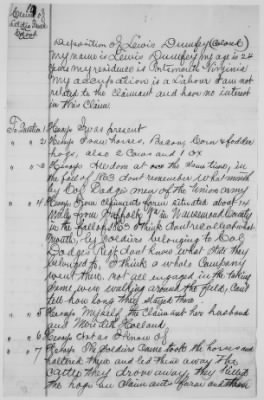 Deposition of Lewis Dumfey (Colored)
My name is Lewis Dumfey my age is 24
years my residence is Portsmouth Virginia
My occupation is a Labour I am not
related to the claimant and have no interest
in this Claim.
To Question 1 Says I was present
" " 2 Says Some horses, Bacon, Corn & fodder
hogs, also 2 Cows and 1 ox
" " 3 Says taken at one the same time, in
the fall of 1863 dont remember what month
by Col Dodges men of the Union army
" " 4 Says from Claimants farm situated about 14
miles from Suffolk Va in County
in the fall of 1863 I think dont recollect what
month, by Soldiers belonging to Col
Dodges Regt dont know what State they
belonged to, I think a whole Company
went there, not all engaged in the taking
some were walking around the field, Cant
tell how long they stayed there
" " 5 Says Myself, the Claimant her husband
and Holland
" " 6 Says Not as I know of
" " 7 Says The Soldiers Came took the horses and
haltered them and led them away The
Cattle they drove away, they killed
the hogs on Claimants farm and